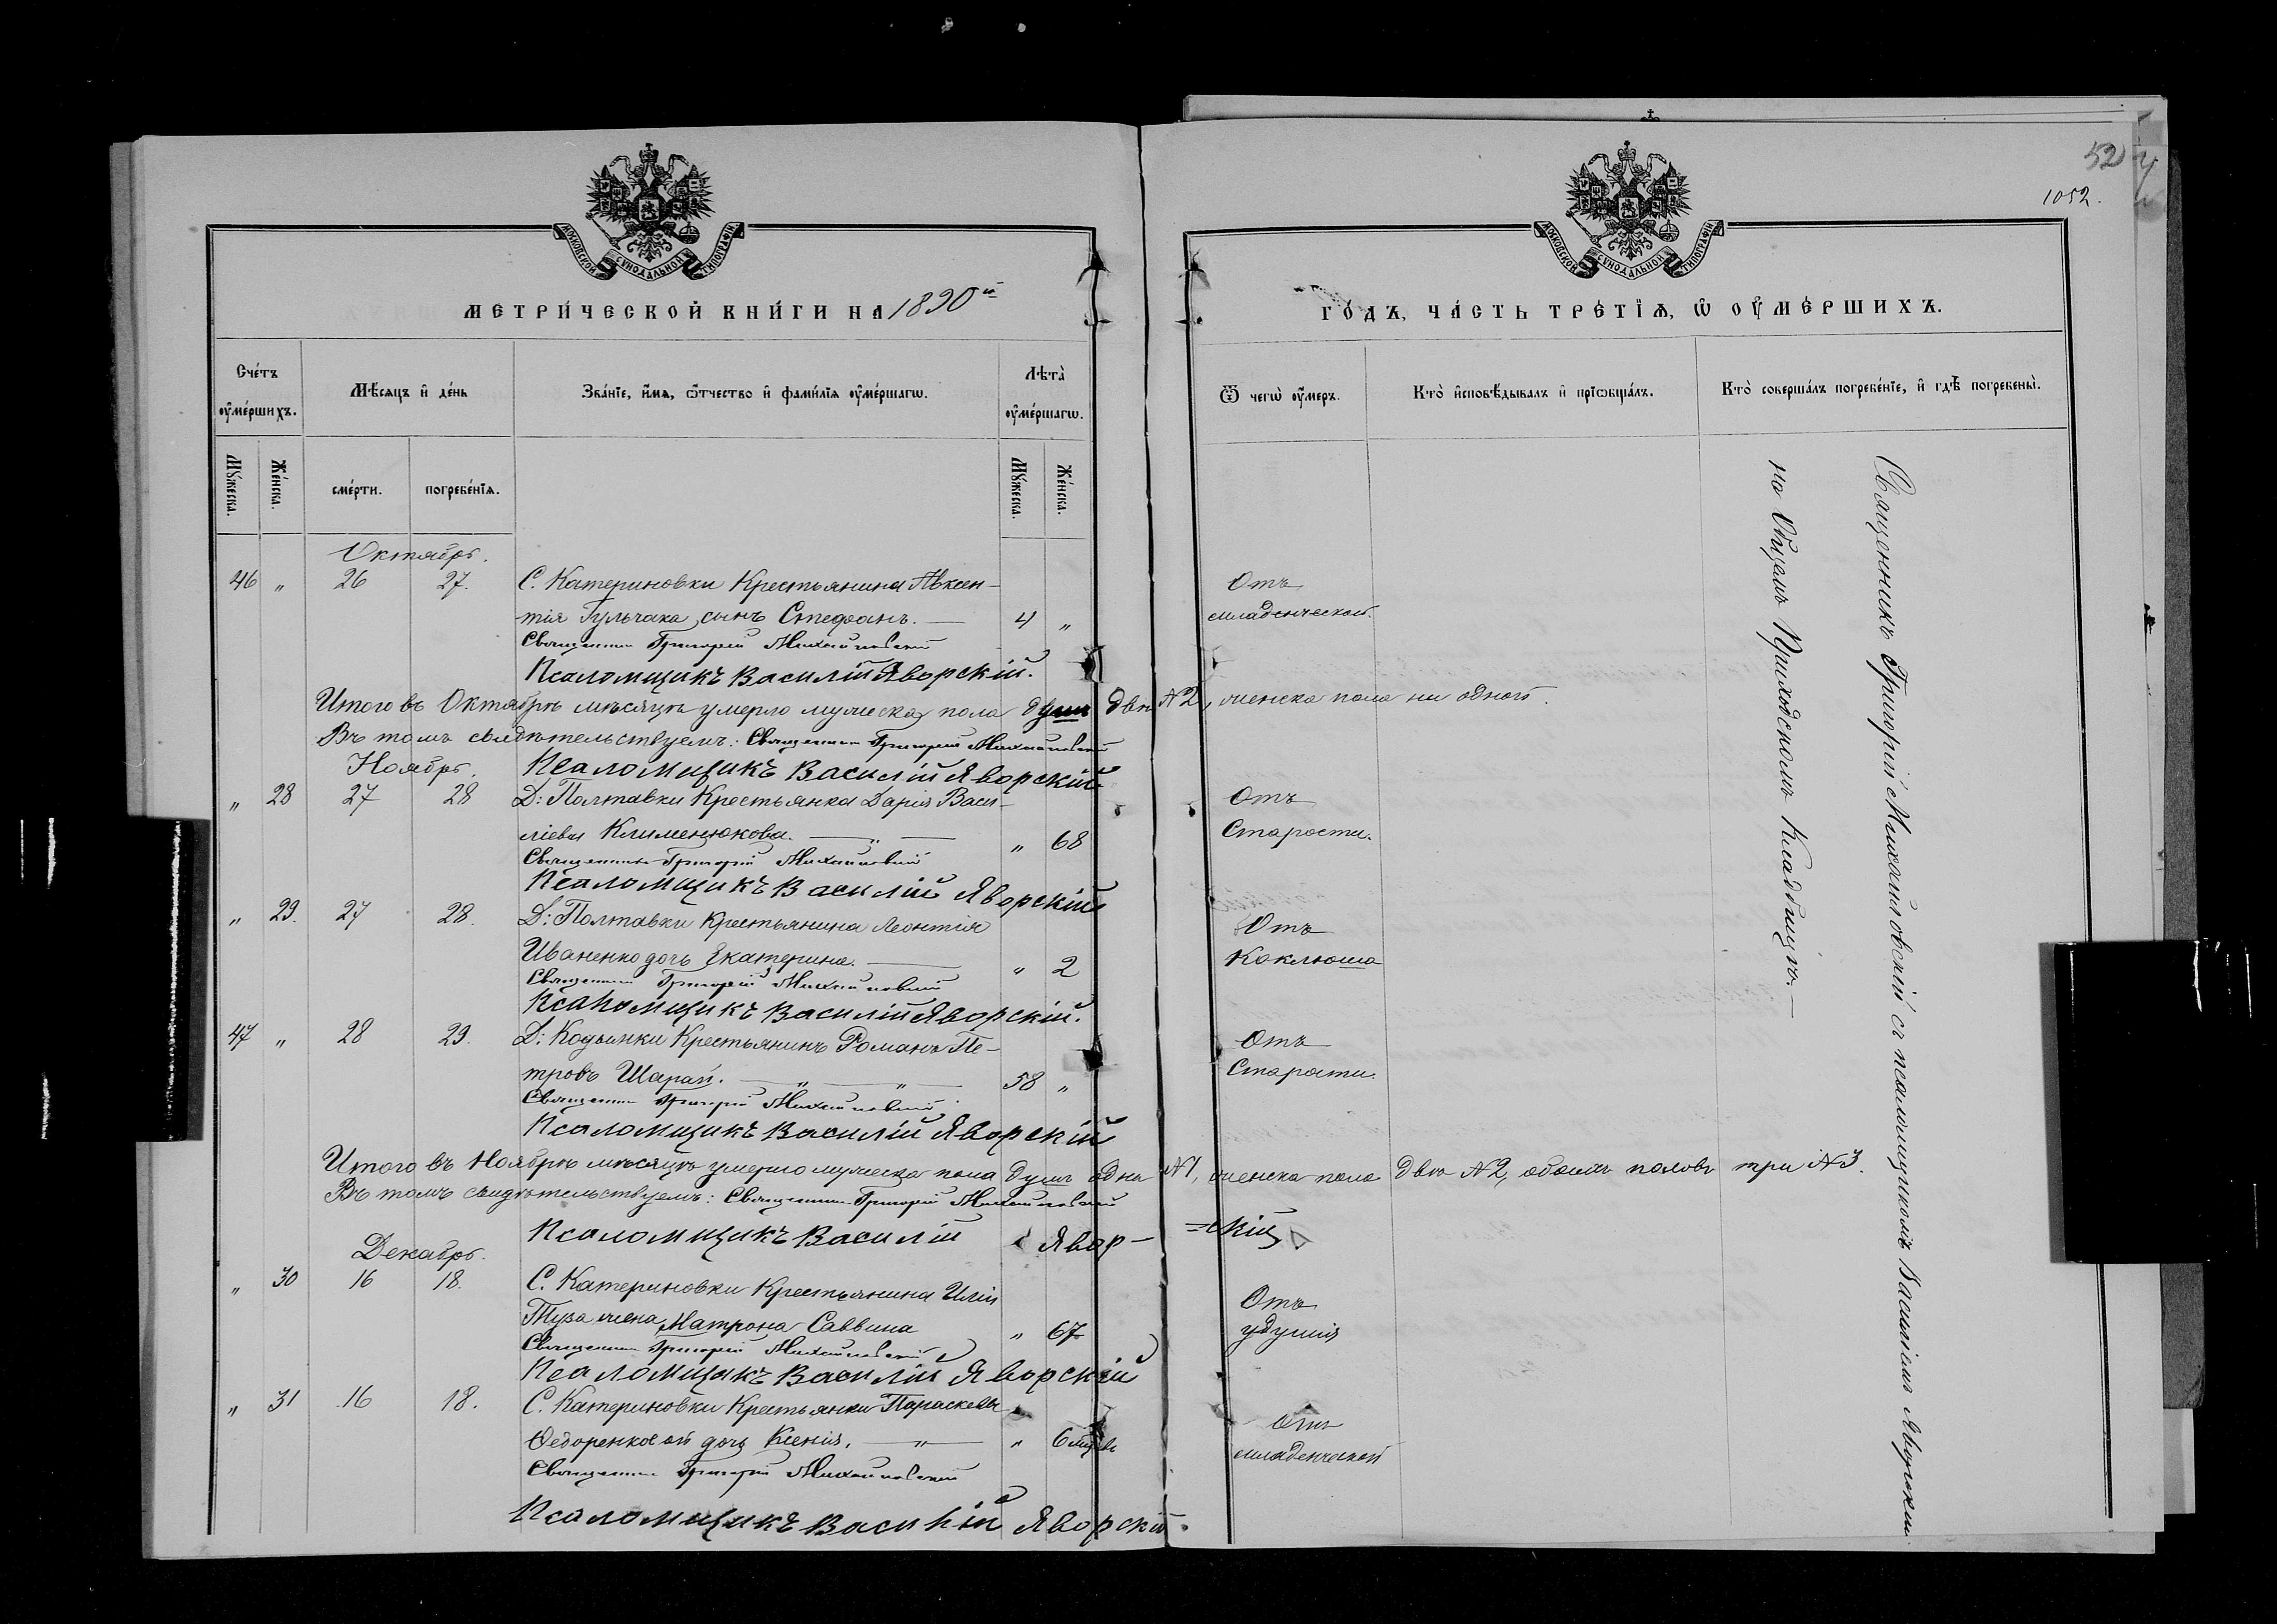 МОСКОВСКОЙ СѴНОДАЛЬНОЙ ТИПОГРАФІИ
МЕТРИ́ЧЕСКОЙ КНИ́ГИ НА 1890й
Сче́тъ оумершихъ.
Мѣсяцъ и день
Званіе, имя, отчество и фамилія оумершагѡ.
Лѣта оумершагѡ.
Мꙋжеска.
Женска.
смерти.
погребенія.
Мꙋжеска.
Женска.
Октябрь.
46 „ 26 27. С. Катериновки Крестьянина Авксен-
тія Гульчака, сынъ Стефанъ. — 4 „
Священникъ Григорій Михайловскій
Псаломщикъ Василій Яворскій.
Итого въ Октябрѣ мѣсяцѣ умерло мужеска пола душъ двѣ №2, женска пола ни одной.
Въ томъ свидѣтельствуемъ: Священникъ Григорій Михайловскій
Ноябрь. Псаломщикъ Василій Яворскій
„ 28 27 28 Д: Полтавки Крестьянка Дарія Васи-
ліева Клименюкова. — „ — „ 68
Священникъ Григорій Михайловскій
Псаломщикъ Василій Яворскій
„ 29. 27 28. Д: Полтавки Крестьянина Леонтія
Иваненко дочь Екатерина. — „ 2
Священникъ Григорій Михайловскій
Псаломщикъ Василій Яворскій.
47 „ 28 29. Д: Кодымки Крестьянинъ Романъ Пе-
тровъ Шарай. — „ — „ — 58 „
Священникъ Григорій Михайловскій
Псаломщикъ Василій Яворскій
Итого въ Ноябрѣ мѣсяцѣ умерло мужеска пола душъ одна №1, женска пола двѣ №2, обоихъ половъ три №3.
Въ томъ свидѣтельствуемъ: Священникъ Григорій Михайловскій
Псаломщикъ Василій Явор-=скій
Декабрь.
„ 30 16 18. С. Катериновки Крестьянина Иліи
Туза жена Матрона Саввина „ 67
Священникъ Григорій Михайловскій
Псаломщикъ Василій Яворскій
„ 31 16 18. С. Катериновки Крестьянки Параскевы
Ѳедоренковой дочь Ксенія. — „ — „ 6 мцѣв
Священникъ Григорій Михайловскій
Псаломщикъ Василій Яворскій.
52
1052.
МОСКОВСКОЙ СѴНОДАЛЬНОЙ ТИПОГРАФІИ
ГО́ДЪ, ЧА́СТЬ ТРЕ́ТІѦ, Ѡ ОУМЕ́РШИХЪ.
Ѿ чегѡ оумеръ.
Кто исповѣдывалъ и пріѡбщалъ.
Кто совершалъ погребеніе, и гдѣ погребены.
Отъ
младенческой.
Отъ
Старости.
Отъ
Коклюша
Отъ
Старости.
Отъ
удушія
Отъ
младенческой
Священникъ Григорій Михайловскій съ псаломщикомъ Василіемъ Яворскимъ
на Общемъ Приходскомъ Кладбищѣ. —